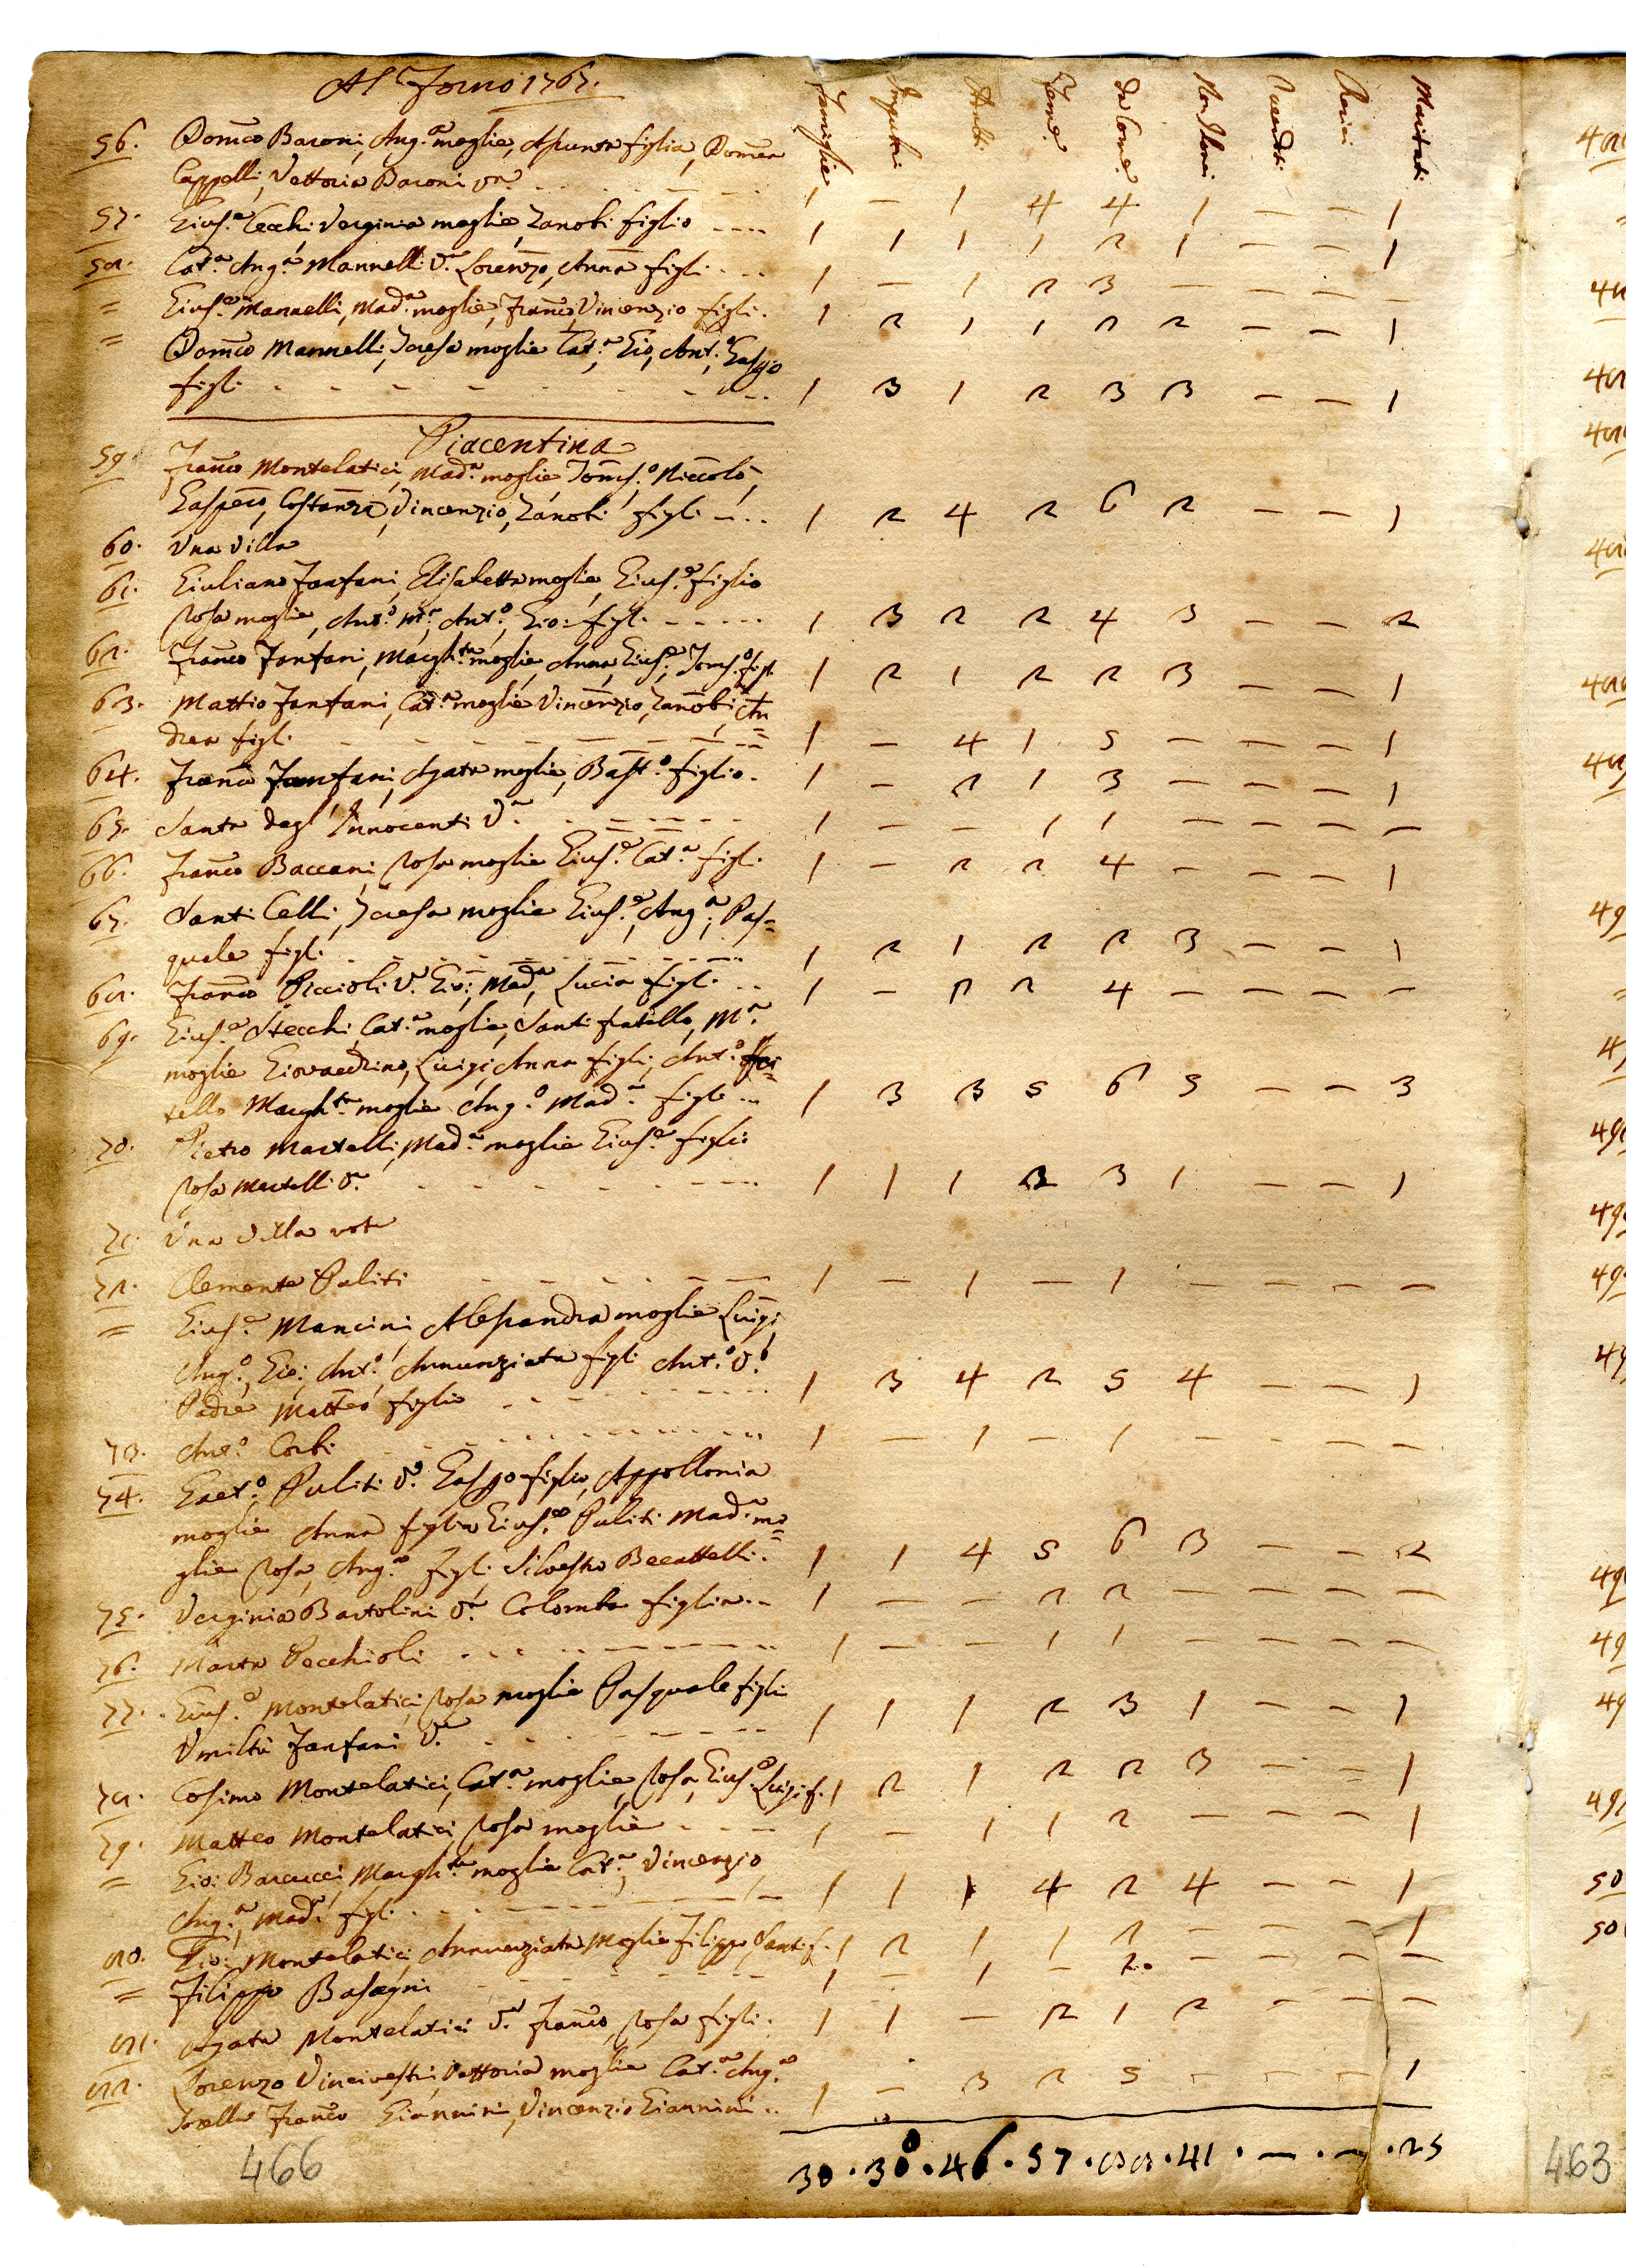 Al Forno 1767.
Famiglie Impuberi Adulti Fem.e Da Com.e Non Com.i Sacerdoti Maritati
56. Dom̃co Baroni, Ang.a moglie, Assunta figlia, Dom̃ca
Cappelli, Vettoria Baroni va. 1 — 1 4 4 1 — — 1
57. Gius.e Cecchi Verginia moglie, Zanobi figlio 1 1 1 1 2 1 — — 1
58. Cat.a Ang.a Mannelli V.a Lorenzo, Anna figli 1 — 1 2 3 — — — —
= Gius.e Mannelli, Mad.a moglie, Fran̄co, Vincenzio figli. 1 2 1 1 2 2 — — 1
= Dom̃co Mannelli, Teresa moglie Cat.a Gio, Ant.o Gasp̃o
figli 1 3 1 2 3 3 — — 1
Piacentina
59. Fran̄co Montelatici, Mad.a moglie, Tom̃s.o Niccolò,
Gasp̃ero, Costanza, Vincenzio, Zanobi figli 1 2 4 2 6 2 — — 1
60. Una Villa
61. Giuliano Fanfani, Elisabetta moglie, Gius.e figlio
Rosa moglie, Ant.o M.a, Ant.o, Gio: figli 1 3 2 2 4 3 — — 2
62. Fran̄co Fanfani, Margh.ta moglie, Anna, Gius.e, Tom̃s.o figli 1 2 1 2 2 3 — — 1
63. Mattio Fanfani, Cat.a moglie Vincenzio, Zanobi, An=
drea figli 1 — 4 1 5 — — — 1
64. Fran̄co Fanfani, Agata moglie, Bast.o figlio. 1 — 2 1 3 — — — 1
65. Santa degl'Innocenti V.a 1 — — 1 1 — — — —
66. Fran̄co Baccani, Rosa moglie Gius.e Cat.a figli. 1 — 2 2 4 — — — 1
67. Santi Celli, Teresa moglie Gius.e, Ang.a, Pas=
quale figli 1 2 1 2 2 3 — — 1
68. Fran̄co Piccioli V.o Gio: Mad.a, Lucia figli 1 — 2 2 4 — — — —
69. Gius.e Stecchi, Cat.a moglie, Santi fratello, M.a
moglie Giovacchino, Luigi, Anna figli, Ant.o fra=
tello Margh.ta moglie Ang.o Mad.a figli 1 3 3 5 6 5 — — 3
70. Pietro Martelli, Mad.a moglie Gius.e figlio
Rosa Martelli V.a 1 1 1 2 3 1 — — 1
71. Una Villa vota
72. Clemente Puliti 1 — 1 — 1 — — — —
= Gius.e Mancini, Alessandra moglie Luigi,
Ang.o, Gio: Ant.o Annunziata figli Ant.o V.o
Padre Matteo figlio 1 3 4 2 5 4 — — 1
73. Ant.o Corbi 1 — 1 — 1 — — — —
74. Gaet.o Puliti V.o Gasp̃o figlio, Appollonia
moglie Anna figlia Gius.e Puliti Mad.a mo=
glie Rosa, Ang.a figli Silvestro Becattelli 1 1 4 5 6 3 — — 2
75. Verginia Bartolini V.a Colomba figlia 1 — — 2 2 — — — —
76. Marta Pecchioli 1 — — 1 1 — — — —
77. Gius.e Montelatici, Rosa moglie Pasquale figlio
Umiltà Fanfani V.a 1 1 1 2 3 1 — — 1
78. Cosimo Montelatici, Cat.a moglie, Rosa, Gius.e Luigi f. 1 2 1 2 2 3 — = 1
79. Matteo Montelatici, Rosa moglie 1 — 1 1 2 — — — 1
= Gio: Barcucci, Margh.ta moglie Cat.a, Vincenzio
Ang.a, Mad.a figli 1 1 1 4 2 4 — — 1
80. Gio: Montelatici, Annunziata Moglie Filippo Santi f. 1 2 1 1 2 — — — 1
= Filippo Basagni 1 — 1 — 2. — — — —
81. Agata Montelatici V.a Fran̄co, Rosa figli 1 1 — 2 1 2 — — —
82. Lorenzo Vincivestri, Vettoria moglie Cat.a Ang.a
Sorella Fran̄co Giannini, Vincenzio Giannini 1 — 3 2 5 — — — 1
30 . 38 . 46 . 57 . 88 . 41 . — . — . 25
466
463